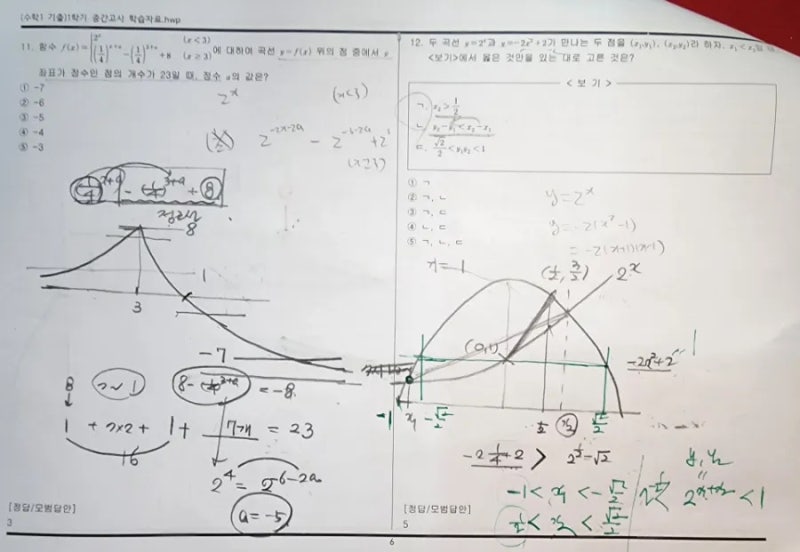 (수학1 기출)1학기 중간고사 학습자료.hwp
11. 함수 f(x)= 2^x (x<3)
(1/4)^(x+a)-(1/4)^(3+a)+8 (x≥3) 에 대하여 곡선 y=f(x) 위의 점 중에서 y
좌표가 정수인 점의 개수가 23일 때, 정수 a의 값은?
① -7
② -6
③ -5
④ -4
⑤ -3
2^x (x<3)
2^(-2x-2a) - 2^(-6-2a) + 2^3
(x≥3)
(1/4)^(x+a) - (1/4)^(3+a) + 8
8
1
3
-7
8 7~1 8-(1/4)^(3+a) = -8
1 + 7×2 + 1 + 7개 = 23
16
2^4 = 2^(-6-2a)
a=-5
[정답/모범답안]
3
12. 두 곡선 y=2^x과 y=-2x²+2가 만나는 두 점을 (x₁,y₁), (x₂,y₂)라 하자. x₁<x₂일 때
<보기>에서 옳은 것만을 있는 대로 고른 것은?
<보 기>
ㄱ. x₂>1/2
ㄴ. y₂-y₁<x₂-x₁
ㄷ. √2/2<y₁y₂<1
① ㄱ
② ㄱ, ㄴ
③ ㄱ, ㄷ
④ ㄴ, ㄷ
⑤ ㄱ, ㄴ, ㄷ
y=2^x
y=-2(x²-1)
=-2(x+1)(x-1)
(1/2, 3/2) 2^x
(0,1)
-2x²+2
-1 x₁ -√2/2 1/2 x₂ √2/2
-2 1/4+2 > 2^(1/2)=√2
y₁y₂
-1 < x₁ < -√2/2
2^(x₁+x₂) < 1
1/2 < x₂ < √2/2
[정답/모범답안]
5
6